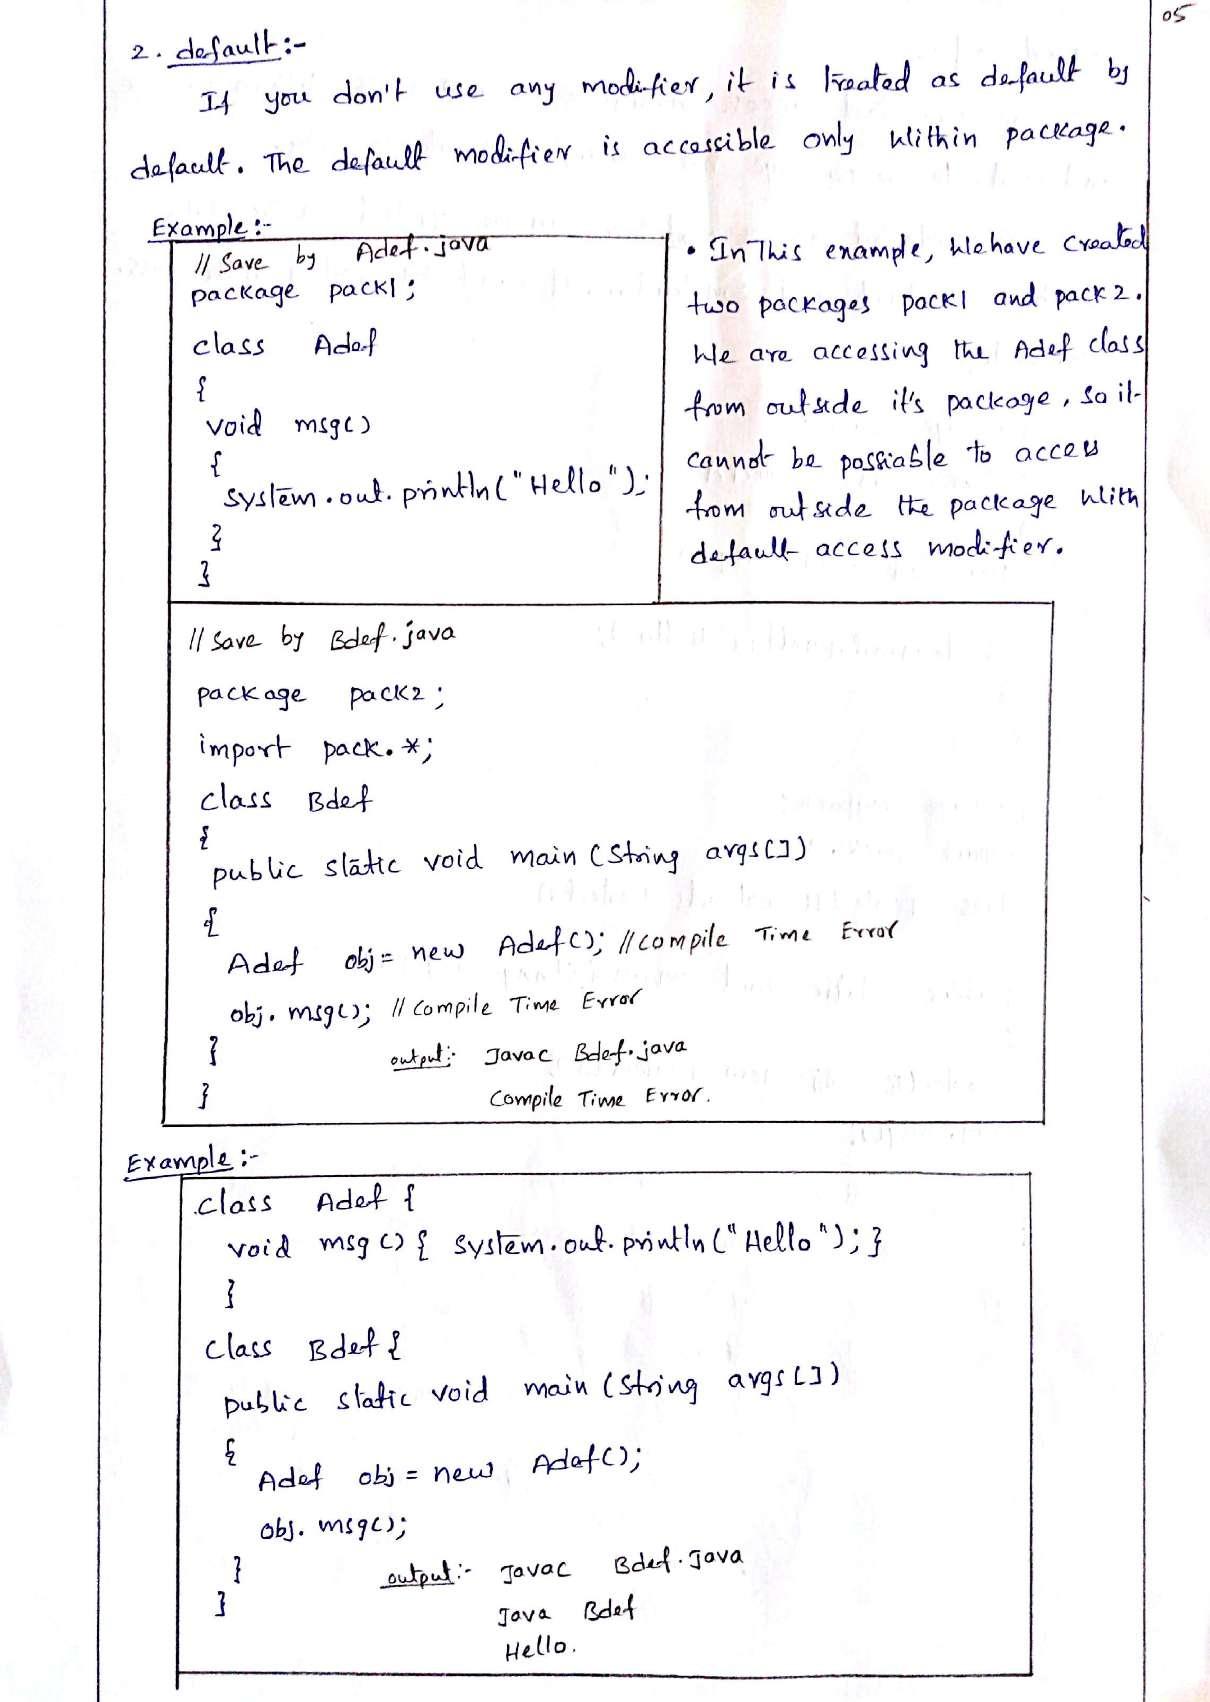 05
2. default:-
If you don't use any modifier, it is treated as default by
default. The default modifier is accessible only within package.
Example:-
// Save by Adef.java
package pack1;
class Adef
{
void msg()
{
System.out.println("Hello");
}
}
• In This example, We have Created
two packages pack1 and pack2.
We are accessing the Adef class
from outside it's package, so it
cannot be possiable to access
from outside the package with
default access modifier.
// Save by Bdef.java
package pack2;
import pack.*;
class Bdef
{
public static void main (String args[])
{
Adef obj = new Adef(); // Compile Time Error
obj.msg(); // Compile Time Error
}
output:- Javac Bdef.java
}
Compile Time Error.
Example:-
class Adef {
void msg () { System.out.println("Hello"); }
}
class Bdef {
public static void main (String args[])
{
Adef obj = new Adef();
obj.msg();
}
output:- Javac Bdef.Java
}
Java Bdef
Hello.